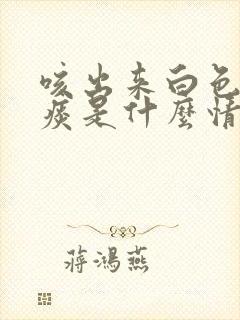 咳出来白色
痰是什麼情
蔣鴻燕